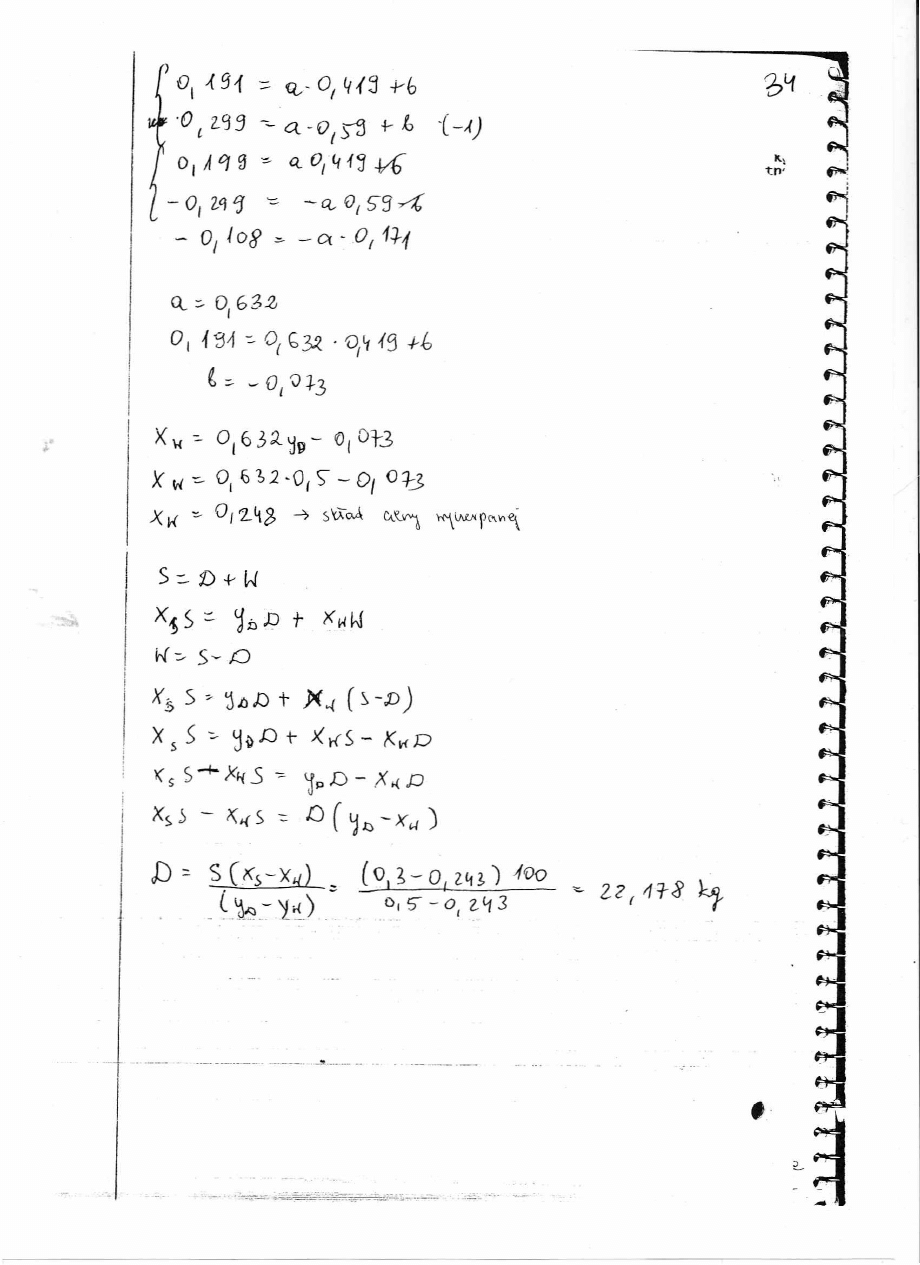 34
0,191 = a·0,419 + b
·0,299 = a·0,59 + b ·(-1)
0,199 = a 0,419 + b
-0,299 = -a 0,59 - b
- 0,108 = -a·0,171
a = 0,632
0,191 = 0,632 · 0,419 + b
b = -0,073
x_W = 0,632 y_D - 0,073
x_W = 0,632·0,5 - 0,073
x_W = 0,248 → skład cieczy wyczerpanej
S = D + W
x_S S = y_D D + x_W W
W = S - D
x_S S = y_D D + x_W (S-D)
x_S S = y_D D + x_W S - x_W D
x_S S - x_W S = y_D D - x_W D
x_S S - x_W S = D (y_D - x_W)
D = S (x_S - x_W) / (y_D - y_W) = (0,3 - 0,243) 100 / 0,5 - 0,243 = 22,178 kg